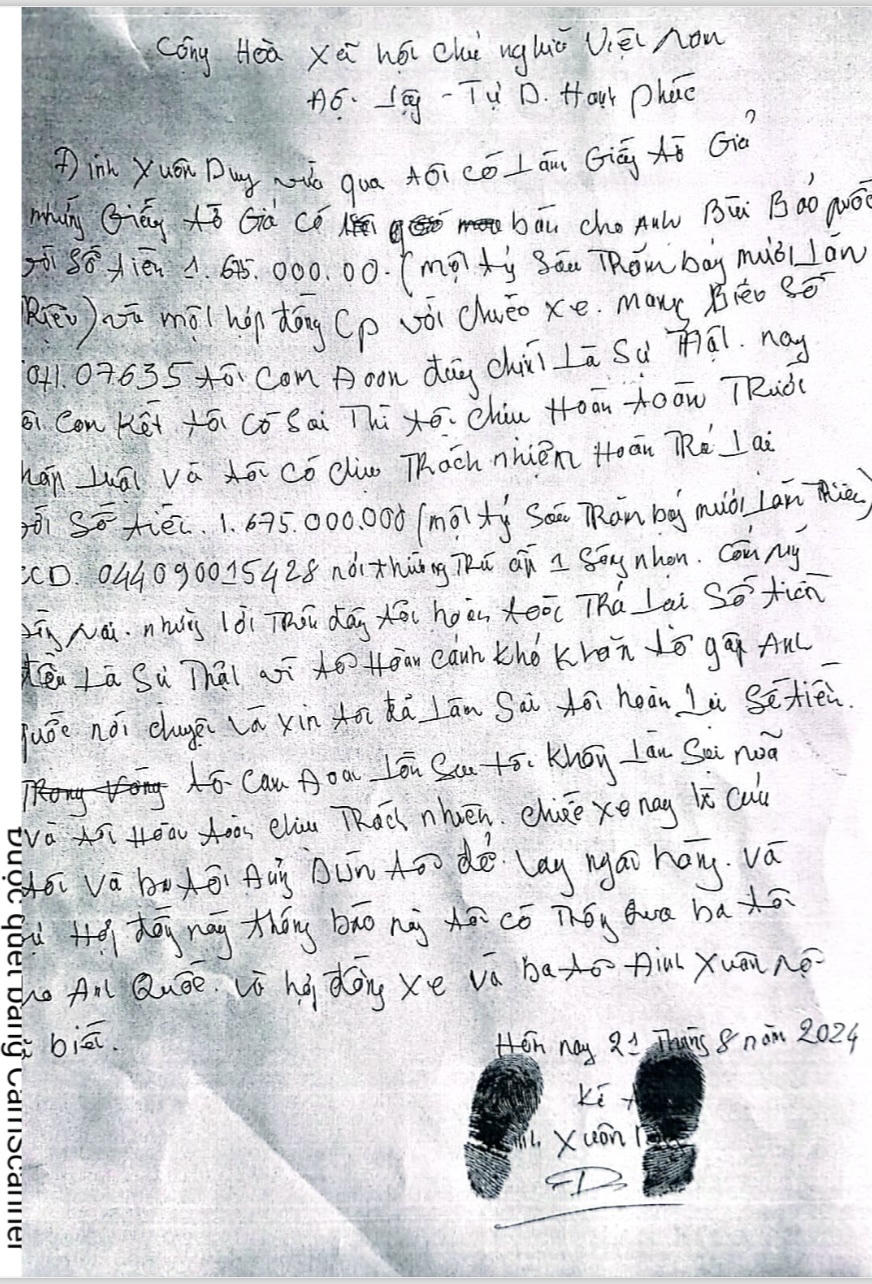 Cộng Hoà xã hội chủ nghĩa Việt Nam
Độc Lập - Tự D. Hạnh phúc
Đinh Xuân Duy vừa qua tôi có Làm Giấy tờ Giả
những Giấy tờ Giả có bán cho Anh Bùi Bảo Quốc
với Số tiền 1.675.000.00. (một tỷ Sáu Trăm bảy mươi Lăm
Riệu) và một hợp đồng Cp với chiếc xe. mang Biển Số
07635 tôi Cam Đoan đúng chính Là Sự Thật. nay
Cam Kết tôi có Sai Thì tôi chịu Hoàn toàn Trước
Luật và tôi có chịu Thách nhiệm Hoàn Trả Lại
Số tiền. 1.675.000.000 (một tỷ Sáu Trăm bảy mươi Lăm Riệu)
CCD. 044090015428 nơi thường Trú ấp 1 Sông nhạn. Cẩm Mỹ
Nai. những lời Trên đây tôi hoàn toàn Trả Lại Số tiền
Là Sự Thật vì Hoàn cảnh khó khăn gặp Anh
Quốc nói chuyện và xin tôi đã Làm Sai tôi hoàn Lại Số tiền.
Trong Vòng tôi Cam Đoan Lần Sau tôi Không Làm Sai nữa
và tôi Hoàn toàn chịu Thách nhiên. chiếc xe nay
tôi và ba tôi để. vay ngân hàng. và
Hợp đồng này thông báo này tôi có Thông qua ba tôi
Anh Quốc. và hợp đồng xe và ba tôi Đinh Xuân
biết.
Hôm nay 21 Tháng 8 năm 2024
Kí
Xuân
Được quét bằng CamScanner